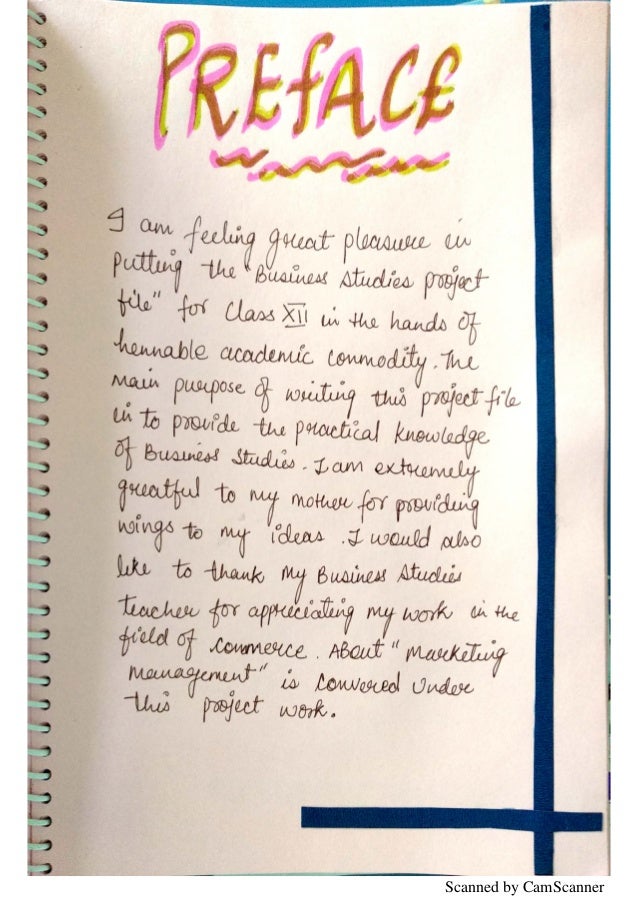 PREFACE
I am feeling great pleasure in
putting the "Business studies project
file" for Class XII in the hands of
hennable academic conmodity. The
main purpose of writing this project file
in to provide the practical knowledge
of Business Studies. I am extremely
greatful to my mother for providing
wings to my ideas. I would also
like to thank my Business studies
teacher for appreciating my work in the
field of commerce. About "marketing
management" is convered under
this project work.
Scanned by CamScanner